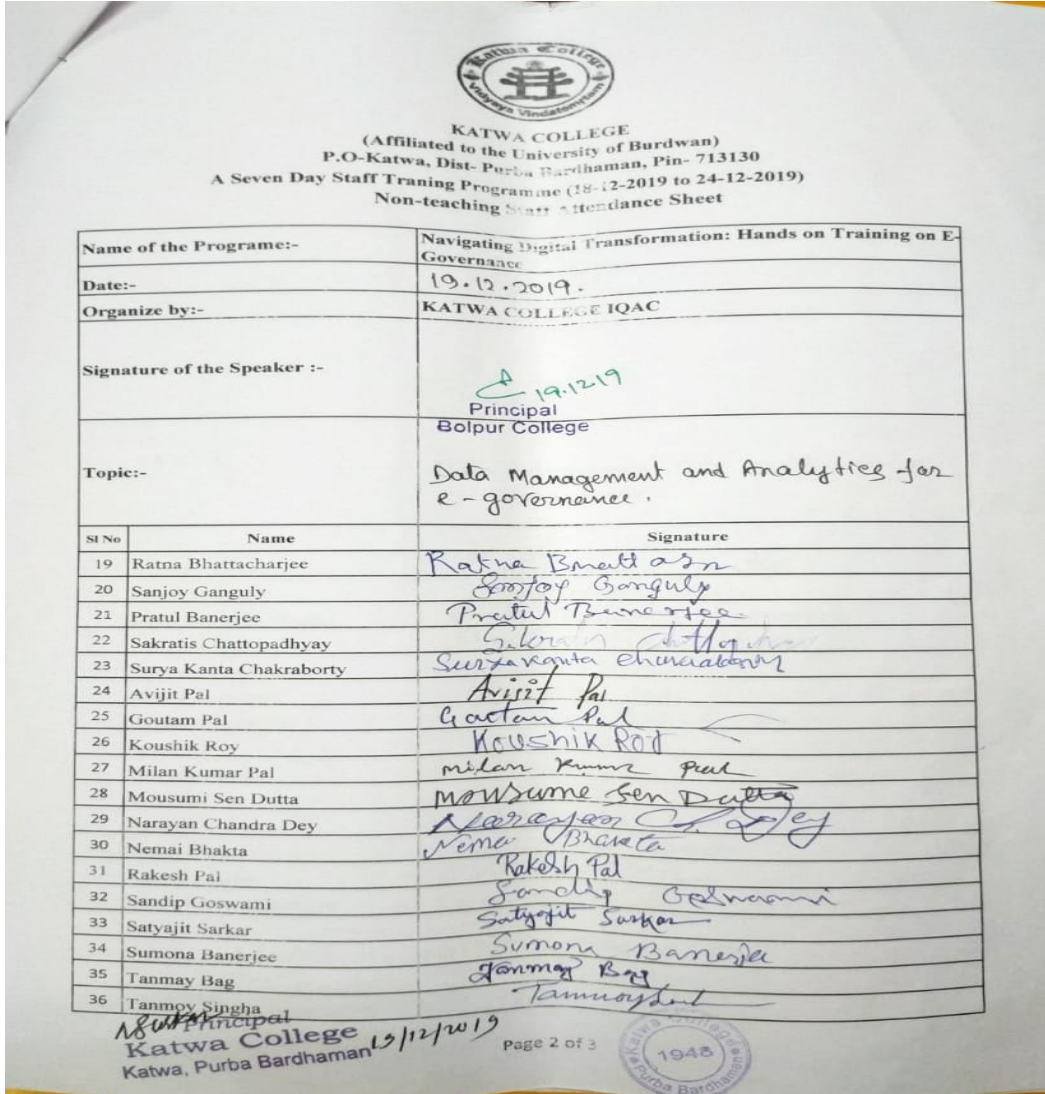 Katwa College
Vidyaya Vindatemrtam
KATWA COLLEGE
(Affiliated to the University of Burdwan)
P.O-Katwa, Dist- Purba Bardhaman, Pin- 713130
A Seven Day Staff Traning Programme (18-12-2019 to 24-12-2019)
Non-teaching Staff Attendance Sheet
Name of the Programe:- Navigating Digital Transformation: Hands on Training on E-
Governance
Date:- 19.12.2019.
Organize by:- KATWA COLLEGE IQAC
Signature of the Speaker :-
19.12.19
Principal
Bolpur College
Topic:- Data Management and Analytics for
e-governance.
Sl No Name Signature
19 Ratna Bhattacharjee Ratna
20 Sanjoy Ganguly Sanjoy Ganguly
21 Pratul Banerjee Pratul Banerjee
22 Sakratis Chattopadhyay
23 Surya Kanta Chakraborty Suryakanta
24 Avijit Pal Avijit Pal
25 Goutam Pal Goutam Pal
26 Koushik Roy Koushik Roy
27 Milan Kumar Pal Milan Kumar Pal
28 Mousumi Sen Dutta Mousume Sen Dutta
29 Narayan Chandra Dey Narayan Ch. Dey
30 Nemai Bhakta Nemai Bhakta
31 Rakesh Pal Rakesh Pal
32 Sandip Goswami Sandip Goswami
33 Satyajit Sarkar Satyajit Sarkar
34 Sumona Banerjee Sumona Banerjee
35 Tanmay Bag Tanmay Bag
36 Tanmoy Singha Tanmoy
Principal
Katwa College
Katwa, Purba Bardhaman 19/12/2019
Page 2 of 3
Katwa College
1948
Purba Bardhaman